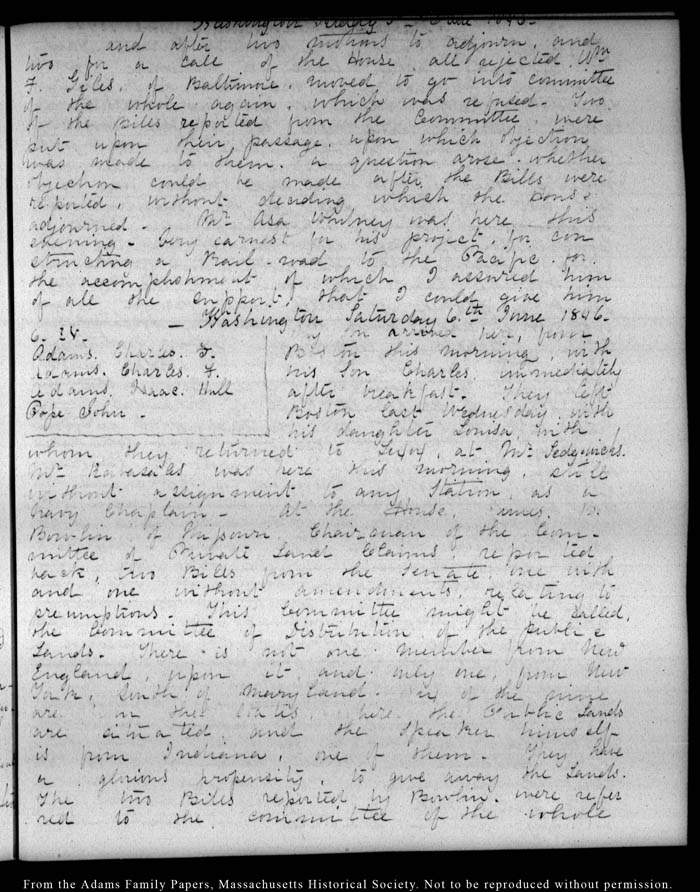 Washington Friday 5th June 1846.
and after two motions to adjourn, and
two for a call of the House all rejected. Wm
F. Giles, of Baltimore, moved to go into committee
of the whole again, which was refused. Two
of the Bills reported from the Committee, were
put upon their passage, upon which objection
was made to them. a question arose whether
objection could be made after the Bills were
reported, without deciding which the House
adjourned. Mr Asa Whitney was here this
evening. Very earnest for his project, for con
structing a Rail-road to the Pacific. for
the accomplishment of which, I assured him
of all the support, that I could give him
— Washington Saturday 6.th June 1846.
6. IV.
Adams. Charles. F.
Adams. Charles. F.
Adams. Isaac. Hull
Pope John -
My Son arrived here, from
Boston this morning, with
his Son Charles, immediately
after breakfast. They left
Boston last Wednesday, with
his daughter Louisa, with
whom they returned to Lenox, at Mr Sedgwick's.
Mr was here this morning, still
without assignment to any Station, as a
Navy Chaplain - At the House, James, B.
Bowlin of Missouri, Chairman of the Com-
mittee of Private Land Claims, reported
back, two Bills from the Senate, one with
and one without amendments, relating to
preemptions. This Committee might be called,
the Committee of Distribution of the public
Lands. There is not one member from New
England, upon it, and only one, from New
York, South of Maryland. Six of the nine
are in the States, where the Public Lands
are situated, and the Speaker himself
is from Indiana, one of them. They have
a glorious propensity, to give away the Lands.
The two Bills reported by Bowlin, were refer
red to the committee of the whole
From the Adams Family Papers, Massachusetts Historical Society. Not to be reproduced without permission.